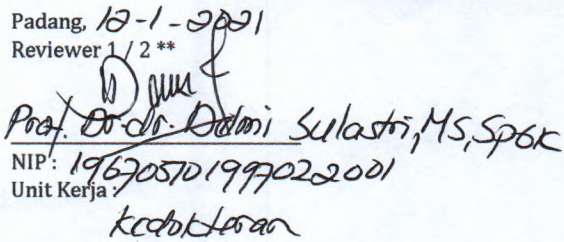 Padang, 12-1-2021
Reviewer 1 / 2 **
Prof. Dr. dr. Delmi Sulastri, MS, SpGK
NIP : 196705101997022001
Unit Kerja :
Kedokteran